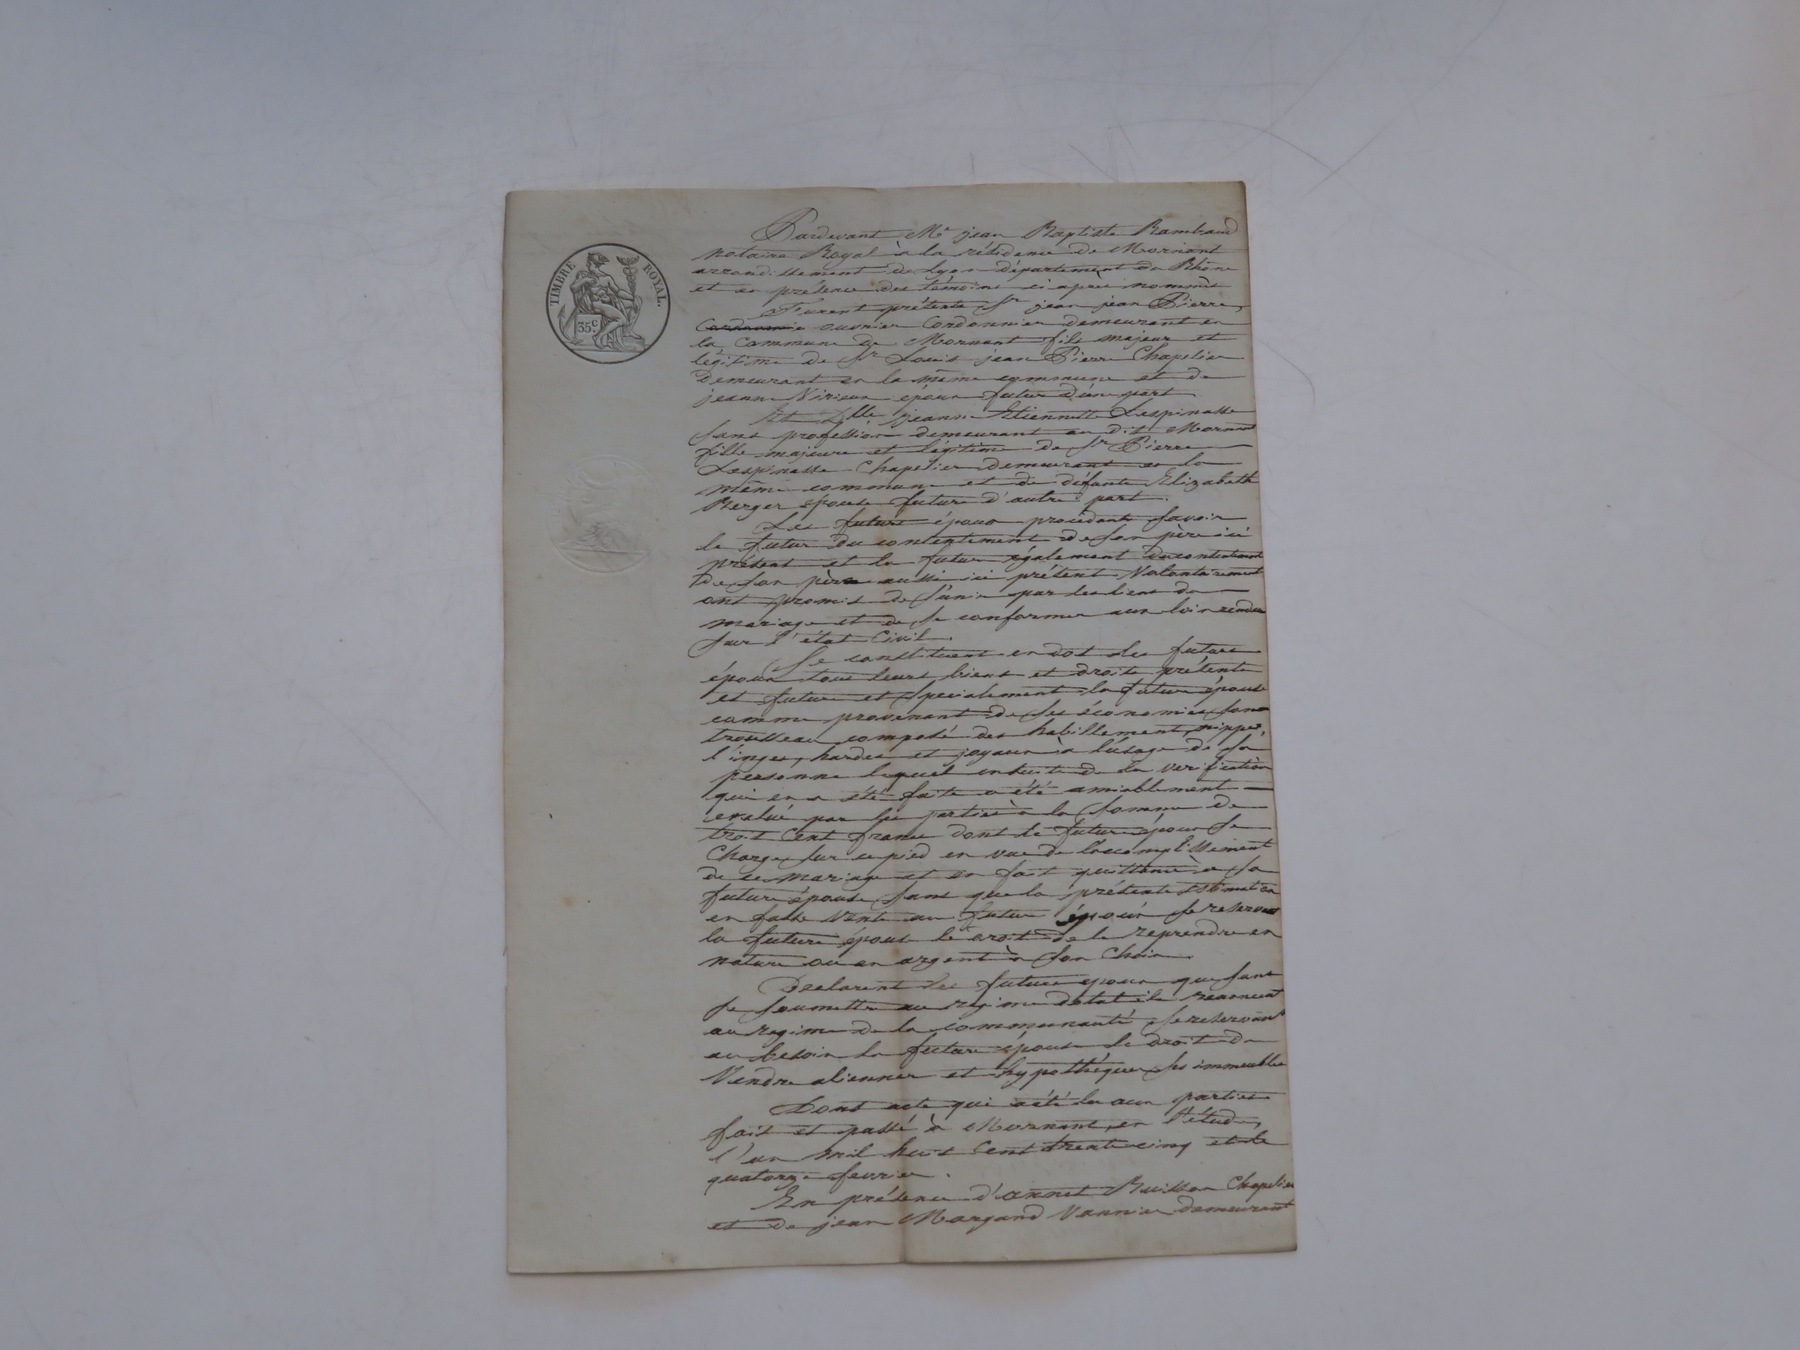 TIMBRE ROYAL.
35c.
Pardevant Me jean Baptiste Rambaud
notaire Royal à la résidence de Mornant
arrondissement de Lyon département du Rhône
et en présence des témoins ci après nommés
Furent présents Sr jean jean Pierre,
ouvrier Cordonnier demeurant en
la Commune de Mornant fils majeur et
légitime de Sr Louis jean Pierre Chapelier
Demeurant en la même commune et de
jeanne époux futur d'une part.
Et Dlle jeanne Etiennette Lespinasse
sans profession demeurant au dit Mornant
fille majeure et légitime de Sr Pierre
Lespinasse Chapelier demeurant en la
même commune et de défunte Elizabeth
Berger épouse future d'autre part.
Les futurs époux procédants savoir
le futur du consentement de son père ici
présent et la future également du consentement
de son père aussi ici présent Volontairement
ont promis de s'unir par les liens du
mariage et de se conformer aux lois rendues
sur l'état Civil.
Se constituent en dot les futurs
époux tous leurs biens et droits présents
et futurs et spécialement la future épouse
comme provenant de ses économies son
trousseau composé des habillement, nippes,
linges, hardes et joyaux à l'usage de sa
personne lequel ensuite de la verification
qui en a été faite a été amiablement
evalué par les parties à la Somme de
trois Cent francs dont le futur époux se
Charge sur ce pied en vue de l'accomplissement
de ce mariage et en fait quittance à sa
future épouse sans que la présente estimation
en fasse vente au futur époux se reservant
la future épouse le droit de le reprendre en
nature ou en argent à son Choix.
Déclarent les futurs époux que sans
se soumettre au regime dotal ils renoncent
au regime de la communauté se reservant
au besoin la future épouse le droit de
Vendre alienner et hypothéquer ses immeubles
Dont acte qui a été lu aux parties
fait et passé à Mornant, en l'étude,
l'an mil huit Cent trente cinq et le
quatorze fevrier.
En présence d'annet Buisson Chapelier
et de jean Margand Vannier demeurant